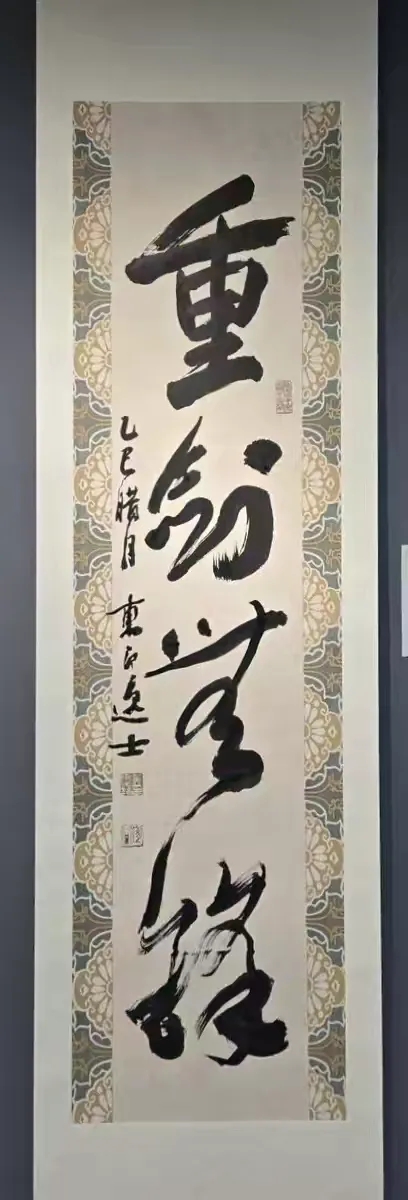 重劍無鋒
乙巳腊月 東印逸士